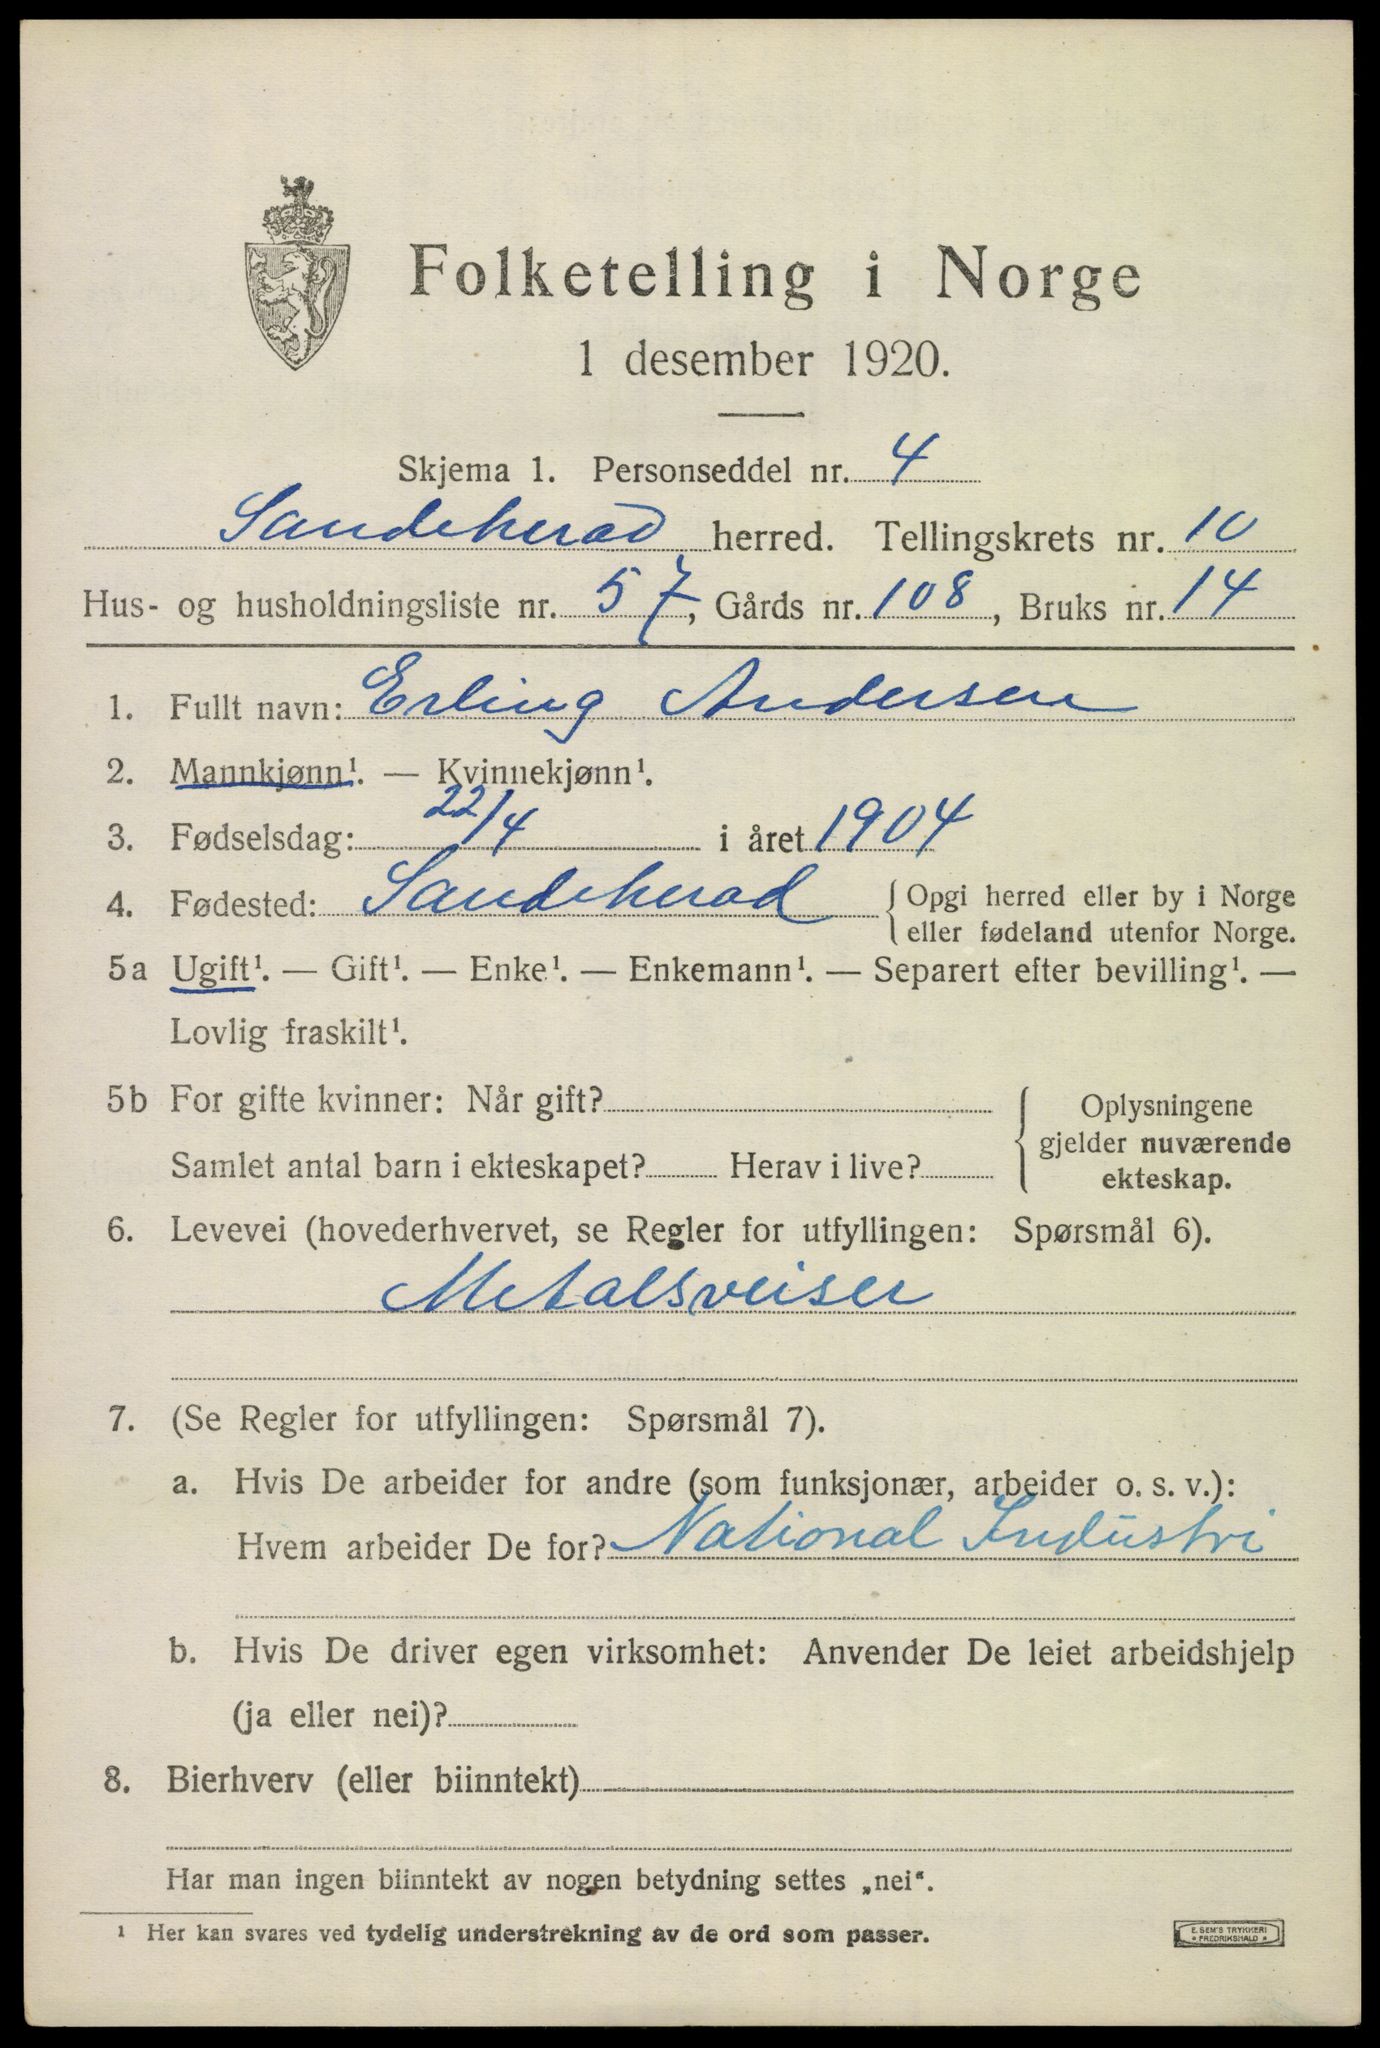 Folketelling i Norge
1 desember 1920.
Skjema 1. Personseddel nr. 4
Sandeherad herred. Tellingskrets nr. 10
Hus- og husholdningsliste nr. 57, Gårds nr. 108, Bruks nr. 14
1. Fullt navn: Erling Andersen
2. Mannkjønn¹. — Kvinnekjønn¹.
3. Fødselsdag: 22/4 i året 1904
4. Fødested: Sandeherad { Opgi herred eller by i Norge
eller fødeland utenfor Norge.
5a Ugift¹. — Gift¹. — Enke¹. — Enkemann¹. — Separert efter bevilling¹. —
Lovlig fraskilt¹.
5b For gifte kvinner: Når gift?
Samlet antal barn i ekteskapet? Herav i live?
{ Oplysningene
gjelder nuværende
ekteskap.
6. Levevei (hovederhvervet, se Regler for utfyllingen: Spørsmål 6).
Metalsveiser
7. (Se Regler for utfyllingen: Spørsmål 7).
a. Hvis De arbeider for andre (som funksjonær, arbeider o. s. v.):
Hvem arbeider De for? National Industri
b. Hvis De driver egen virksomhet: Anvender De leiet arbeidshjelp
(ja eller nei)?
8. Bierhverv (eller biinntekt)
Har man ingen biinntekt av nogen betydning settes „nei“.
¹ Her kan svares ved tydelig understrekning av de ord som passer.
E. SEM'S TRYKKERI
* FREDRIKSHALD *